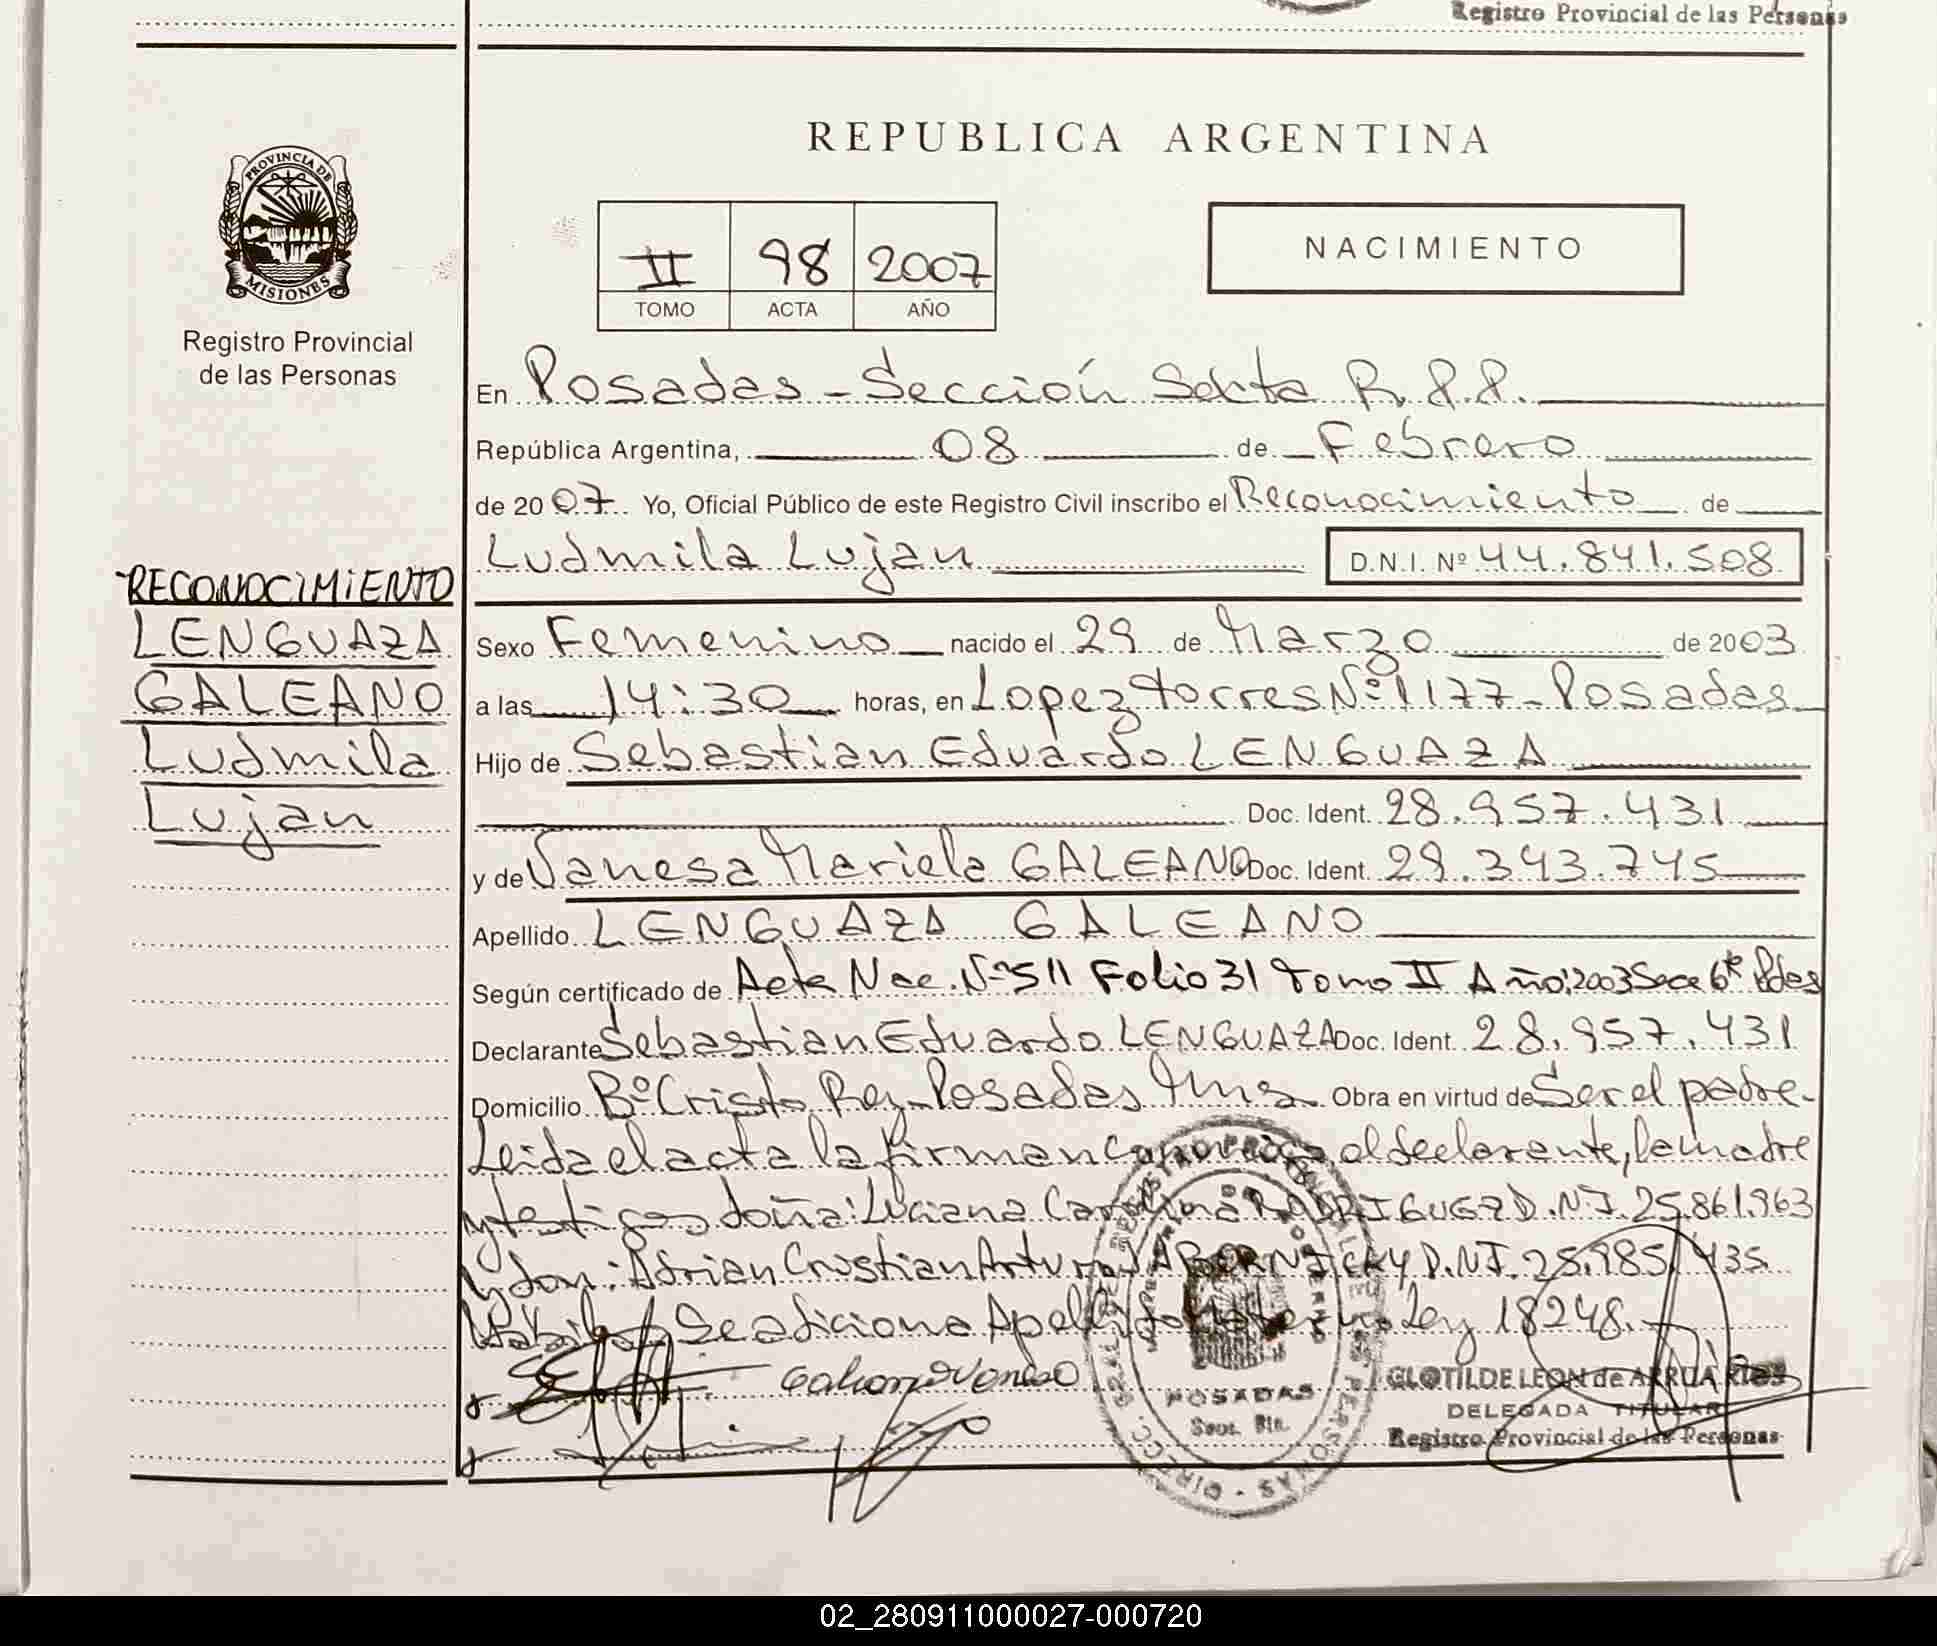 Registro Provincial de las Personas
REPUBLICA ARGENTINA
PROVINCIA DE
MISIONES
Registro Provincial
de las Personas
II 98 2007
TOMO ACTA AÑO
NACIMIENTO
En Posadas - Sección Sexta R.P.P.
República Argentina, 08 de Febrero
de 2007 Yo, Oficial Público de este Registro Civil inscribo el Reconocimiento de
Ludmila Lujan D.N.I. Nº 44.841.508
RECONOCIMIENTO
LENGUAZA
GALEANO
Ludmila
Lujan
Sexo Femenino nacido el 29 de Marzo de 2003
a las 14:30 horas, en Lopez torres Nº 1177 - Posadas
Hijo de Sebastian Eduardo LENGUAZA
Doc. Ident. 28.957.431
y de Vanesa Mariela GALEANO Doc. Ident. 29.343.745
Apellido LENGUAZA GALEANO
Según certificado de Acta Nac. Nº 511 Folio 31 tomo II Año: 2003 Secc 6ª Pdas
Declarante Sebastian Eduardo LENGUAZA Doc. Ident. 28.957.431
Domicilio Bº Cristo Rey - Posadas Mns Obra en virtud de Ser el padre -
Leida el acta la firman conmigo el declarante, la madre
y testigos doña: Luciana Carolina RODRIGUEZ D.N.I. 25.861.963
y don: Adrian Cristian Arturo D.N.I. 25.985.435
Hábiles Se adiciona Apellido Materno Ley 18248.
Galeano Vanesa
POSADAS
CLOTILDE LEON de ARRUA
DELEGADA TITULAR
Registro Provincial de las Personas
02_280911000027-000720